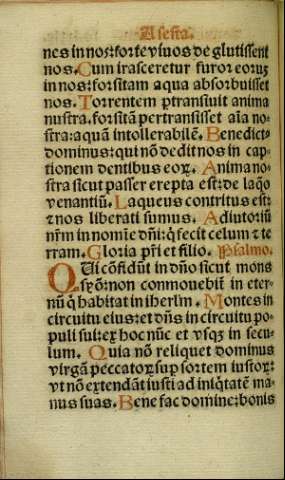 A sesta.
nes in nos: forte viuos de glutissent
nos. Cum irasceretur furor eoruꝫ
in nos: forsitam aqua absorbuisset
nos. Torrentem ꝑtransiuit anima
nustra. forsitã pertransisset aĩa no⸗
stra: aquã intollerabilẽ. Benedictꝰ
dominus: qui nõ dedit nos in cap⸗
tionem dentibus eoꝝ. Anima no⸗
stra sicut passer erepta est: de laq̃o
venantiũ. Laqueus contritus est:
⁊ nos liberati sumus. Adiutoriũ
nr̃m in nomĩe dñi: q̃ fecit celum ⁊ te
rram. Gloria pr̃i et filio. Psalmo.
QUi cõfidũt in dño sicut mons
syõ: non conmouebit̃ in eter⸗
nũ q̃ habitat in iherl'm. Montes in
circuitu eius: et dñs in circuitu po⸗
puli sui: ex hoc nũc et vsqꝫ in secu⸗
lum. Quia nõ reliquet dominus
virgã peccatoꝝ suꝑ sortem iustoꝝ:
vt nõ extendãt iusti ad iniq̃tatẽ ma⸗
nus suas. Bene fac domine: bonis